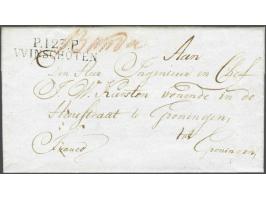 P.123.P.
WINSCHOTEN
Aan
Den Heer Ingenieur in Chef
J. W. Karsten wonende in de
Heerestraat te Groningen,
tot
Franco Groningen,